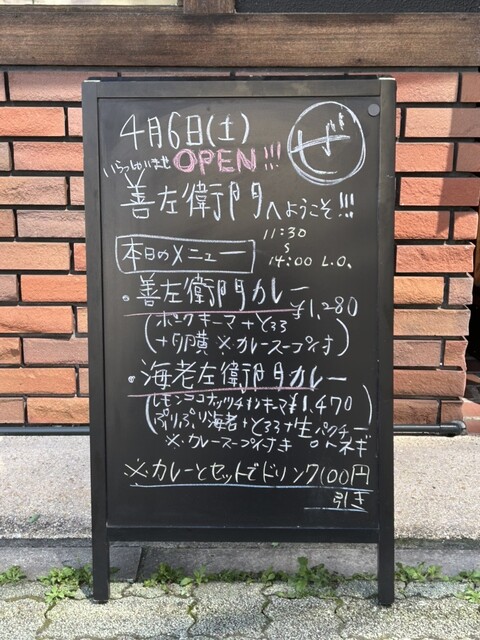 4月6日(土)
ぜ
いらっしゃいませ OPEN!!!
善左衛門へようこそ!!!
11:30
~
14:00 L.O.
本日のメニュー
・善左衛門カレー ¥1,280
(ポークキーマ+とろろ
+卵黄 ※カレースープ付)
・海老左衛門カレー
(レモンココナッツチキンキーマ ¥1,470
ぷりぷり海老+とろろ+生パクチー
※カレースープ付き or ネギ)
※カレーとセットでドリンク100円
引き